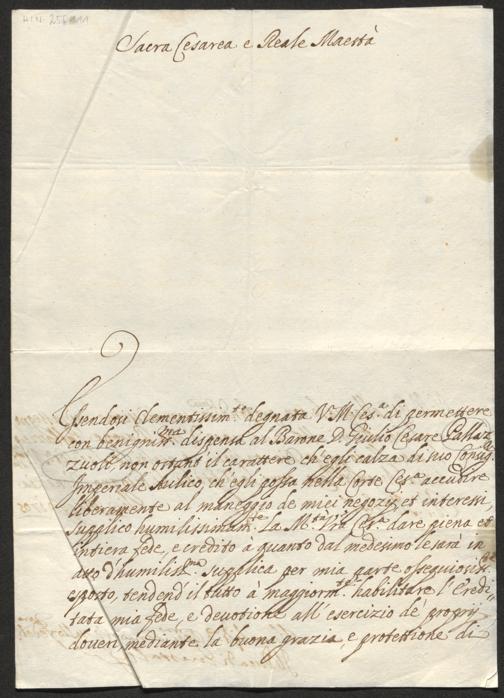 HIN-256811
Sacra Cesarea e Reale Maestà
Essendosi Clementissim.te degnata V.M. Ces.a di permettere
con benignis.ma dispensa al Barone D. Giulio Cesare Pallaz-
zuoli non ostante il carattere ch'egli calza di suo Consig.re
Imperiale Aulico, ch'egli possa nella Corte Ces.a accudire
liberamente al maneggio de miei negozij, et interessi,
supplico humilissimam.te la M.tà V.ra Ces.a dare piena et
intiera fede, e credito a quanto dal medesimo le sarà in
atto d'humiliss.ma supplica per mia parte ossequiosis.te
esposto, tendend'il tutto à maggiorm.te habilitare l'Eredi-
tata mia fede, e devotione all'esercizio de proprij
doveri, mediante la buona grazia, e protettione di